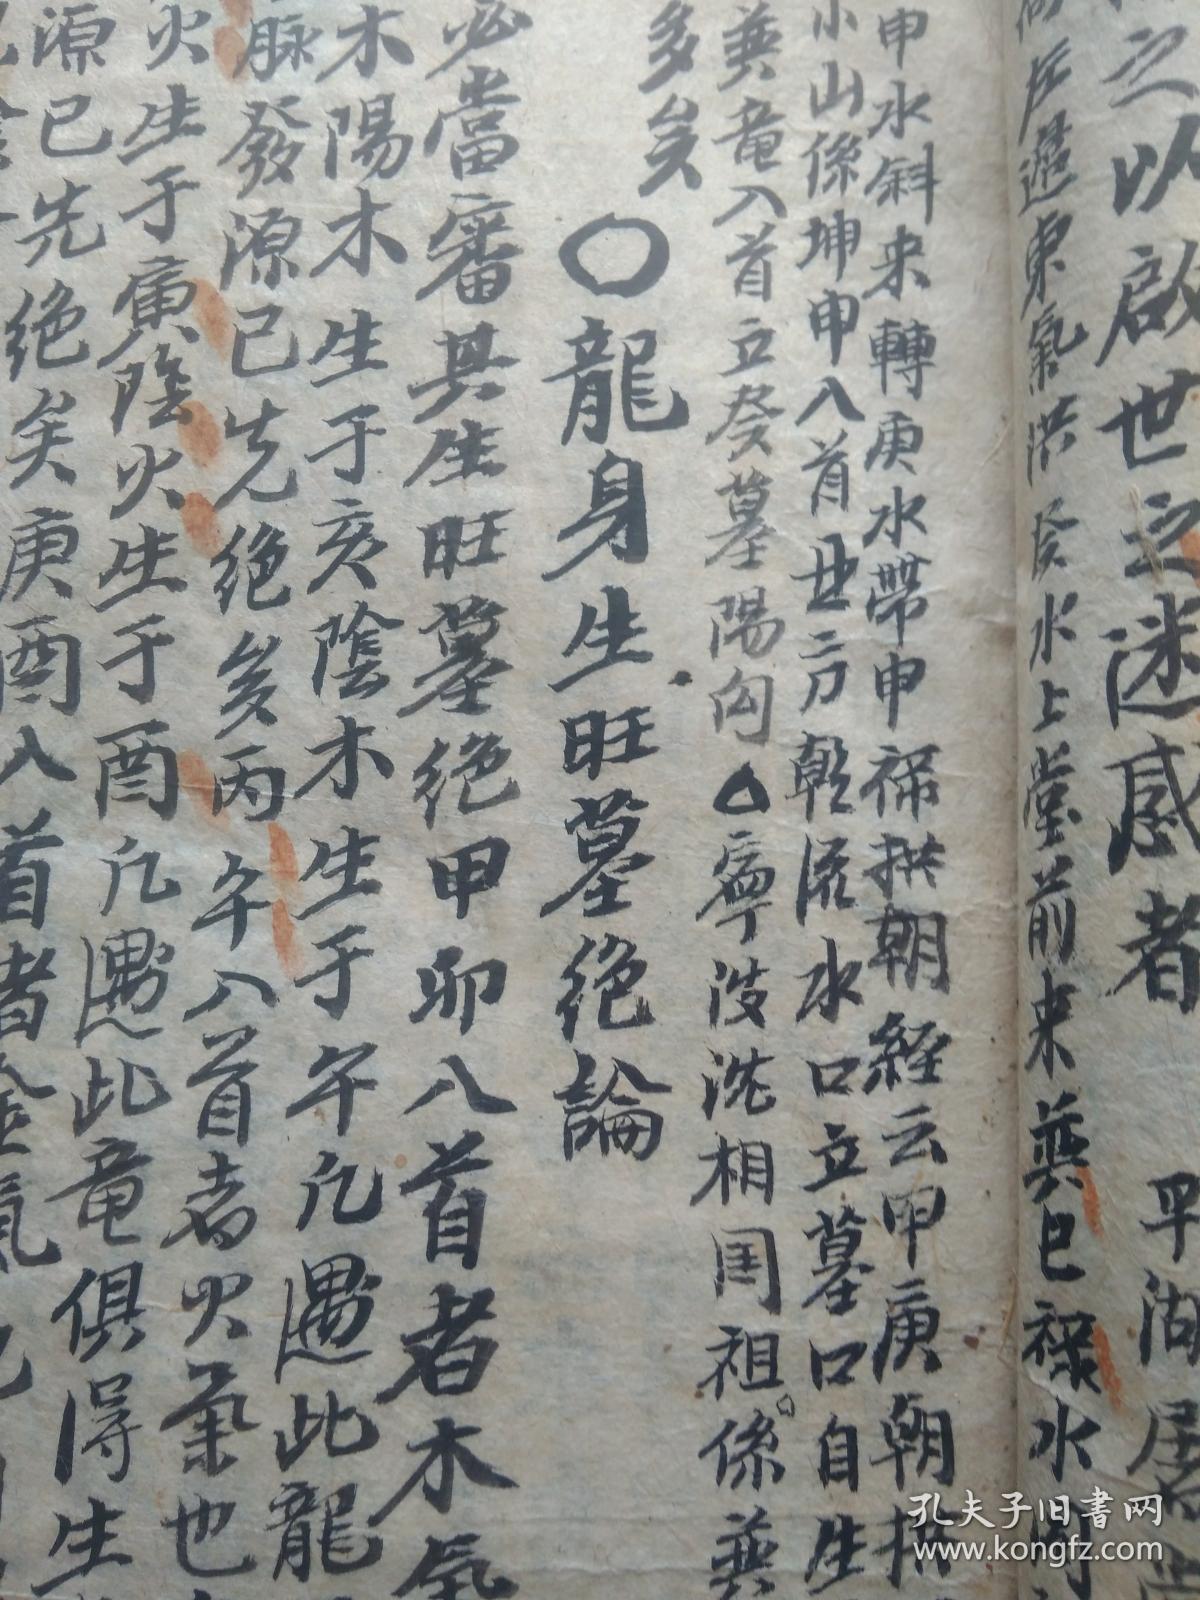 之以啟世之迷惑者 平湖居
左邊東氣洪癸水上堂前来巽巳祿水
申水斜来轉庚水帶申祿拱朝經云甲庚朝拱
小山係坤申入首丑艮方乾流水口立墓口自生
巽竜入首立癸墓陽向△寧波沈相国祖係巽
多矣
○龍身生旺墓绝論
必當審其生旺墓绝甲卯入首者木氣
木陽木生于亥陰木生于午凢遇此龍
脉發源已先绝矣丙午入首者火氣也
火生于寅陰火生于酉凢遇此竜俱得生
源已先绝矣庚酉入首者金氣
孔夫子旧书网
www.kongfz.com